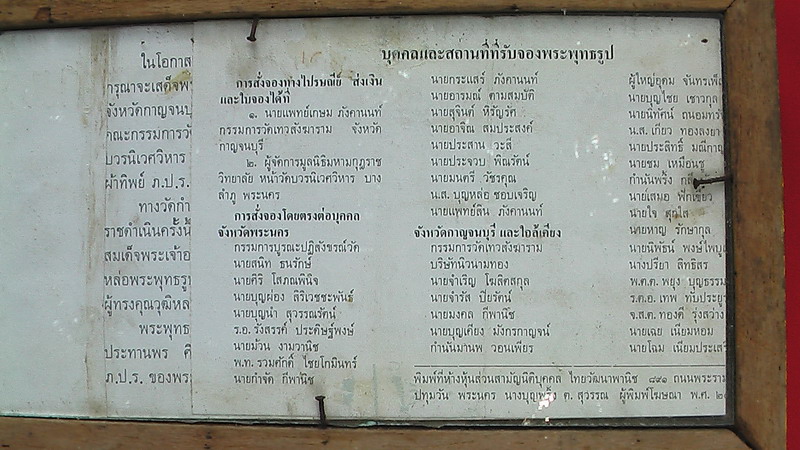 ในโอกาส
กรุณาจะเสด็จพ
จังหวัดกาญจนบุ
คณะกรรมการวั
บวรนิเวศวิหาร
ผ้าทิพย์ ภ.ป.ร.
ทางวัดกำ
ราชดำเนินครั้งนี้
สมเด็จพระเจ้าอ
หล่อพระพุทธรูป
ผู้ทรงคุณวุฒิหล
พระพุทธ
ประทานพร ศี
ภ.ป.ร. ของพระ
บุคคลและสถานที่ที่รับจองพระพุทธรูป
การสั่งจองทางไปรษณีย์ ส่งเงิน
และใบจองได้ที่
๑. นายแพทย์เกษม ภังคานนท์
กรรมการวัดเทวสังฆาราม จังหวัด
กาญจนบุรี
๒. ผู้จัดการมูลนิธิมหามกุฎราช
วิทยาลัย หน้าวัดบวรนิเวศวิหาร บาง
ลำภู พระนคร
การสั่งจองโดยตรงต่อบุคคล
จังหวัดพระนคร
กรรมการบูรณะปฏิสังขรณ์วัด
นายสนิท ธนรักษ์
นายศิริ โสภณพินิจ
นายบุญผ่อง สิริเวชชะพันธ์
นายบุญนำ สุวรรณรัตน์
ร.อ. รังสรรค์ ประดิษฐ์พงษ์
นายม้วน งามวานิช
พ.ท. รวมศักดิ์ ไชยโกมินทร์
นายกำจัด กีพานิช
นายกระแสร์ ภังคานนท์
นายอารมณ์ ตามสมบัติ
นายสุจินต์ หิรัญรัศ
นายอาจิณ สมประสงค์
นายประสาน วะสี
นายประจวบ พิณรัตน์
นายมนตรี วัชรคุณ
น.ส. บุญหล่อ ชอบเจริญ
นายแพทย์ลีน ภังคานนท์
จังหวัดกาญจนบุรี และใกล้เคียง
กรรมการวัดเทวสังฆาราม
บริษัทนิวนามทอง
นายจำเริญ โฆลิตสกุล
นายจำรัส ปิยรัตน์
นายมงคล กีพานิช
นายบุญเคียง มังกรกาญจน์
กำนันมานพ วอนเพียร
ผู้ใหญ่อุดม จันทรเพ็
นายบุญไชย เชาวกุล
นายนิทัศน์ ถนอมทรั
น.ส. เกี่ยว ทองสงยา
นายประสิทธิ์ มณีกา
นายชม เหมือนชู
กำนันพริ้ง
นายเสมอ ฟักเขียว
นายใจ สุกใส
นายหาญ รักษากุล
นายพิพัธน์ พงษ์ไพบูล
นางปรียา สิทธิสร
พ.ต.ต. พยุง บุญธรรม
ร.ต.อ. เทพ ทับประยู
จ.ส.ต. ทองดี รุ่งสว่าง
นายเฉย เนียมหอม
นายโฉม เนียมประเส
พิมพ์ที่ห้างหุ้นส่วนสามัญนิติบุคคล ไทยวัฒนาพานิช ๘๙๑ ถนนพระราม
ปทุมวัน พระนคร นางบุญพริ้ง ต. สุวรรณ ผู้พิมพ์โฆษณา พ.ศ.